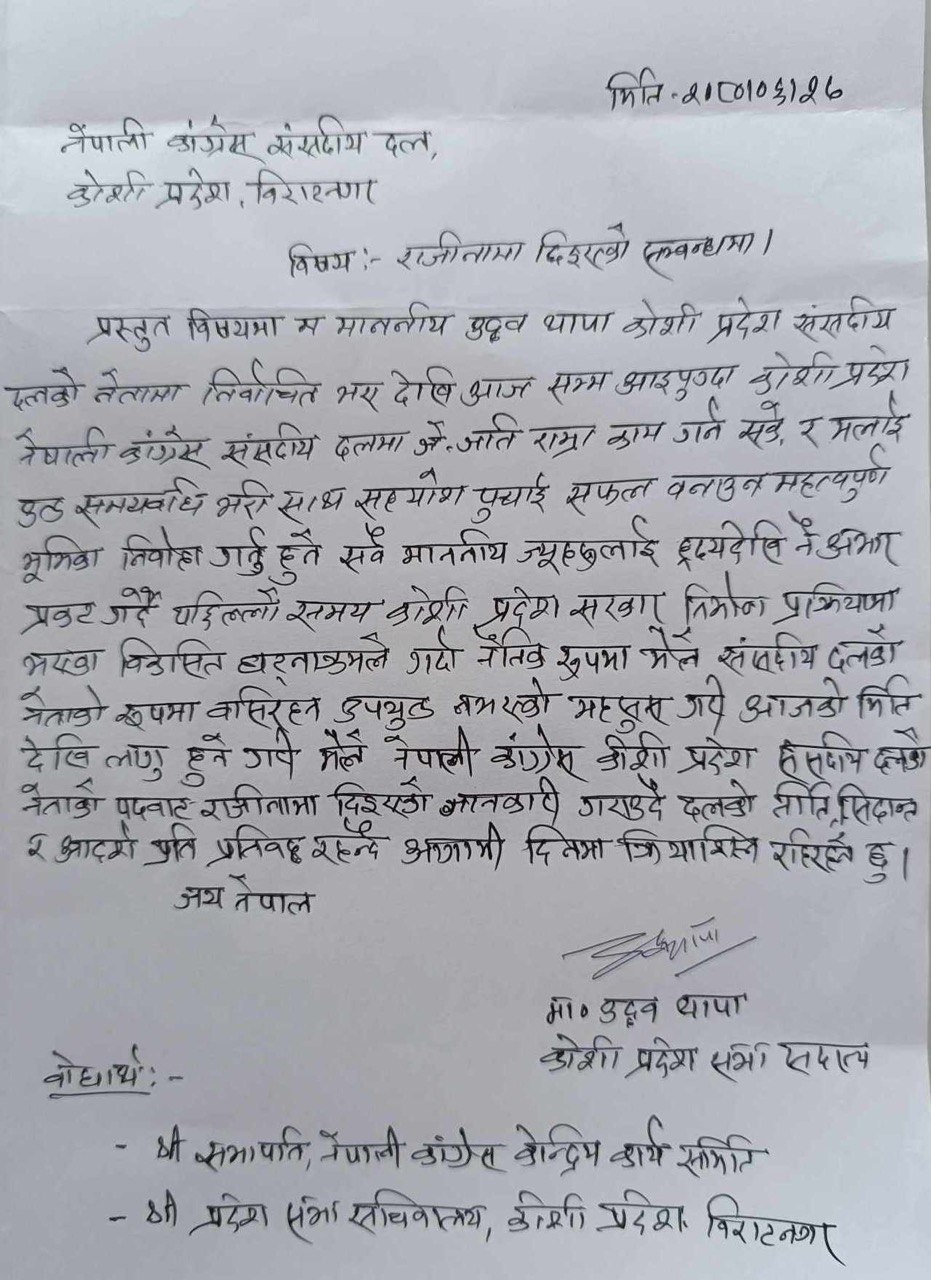 मिति - २०८०।०६।२७
नेपाली कांग्रेस संसदीय दल,
कोशी प्रदेश, विराटनगर
विषय :- राजीनामा दिइएको सम्बन्धमा।
प्रस्तुत विषयमा म माननीय उद्धव थापा कोशी प्रदेश संसदीय
दलको नेतामा निर्वाचित भए देखि आज सम्म आइपुग्दा कोशी प्रदेश
नेपाली कांग्रेस संसदीय दलमा जे-जति राम्रा काम गर्न सकें, र मलाई
उक्त समयावधि भरी साथ सहयोग पुर्‍याई सफल वनाउन महत्वपुर्ण
भूमिका निर्वाहा गर्नु हुने सवै माननीय ज्यूहरुलाई ह्रदयदेखि नै अभार
प्रकट गर्दै पछिल्लो समय कोशी प्रदेश सरकार निर्माण प्रक्रियामा
भएका विकसित घटनाक्रमले गर्दा नैतिक रूपमा मैले संसदीय दलको
नेताको रूपमा वसिरहन उपयुक्त नभएको महसुस गरी आजको मिति
देखि लागु हुने गरी मैले नेपाली कांग्रेस कोशी प्रदेश संसदीय दलको
नेताको पदवाट राजीनामा दिइएको जानकारी गराउदै दलको नीति, सिदान्त
र आदर्श प्रति प्रतिवद्ध रहन्दै आगामी दिनमा क्रियाशिल रहिरहने छु।
जय नेपाल
मा० उद्धव थापा
कोशी प्रदेश सभा सदस्य
वोधार्थ :-
- श्री सभापति, नेपाली कांग्रेस केन्द्रिय कार्य समिति
- श्री प्रदेश सभा सचिवालय, कोशी प्रदेश विराटनगर